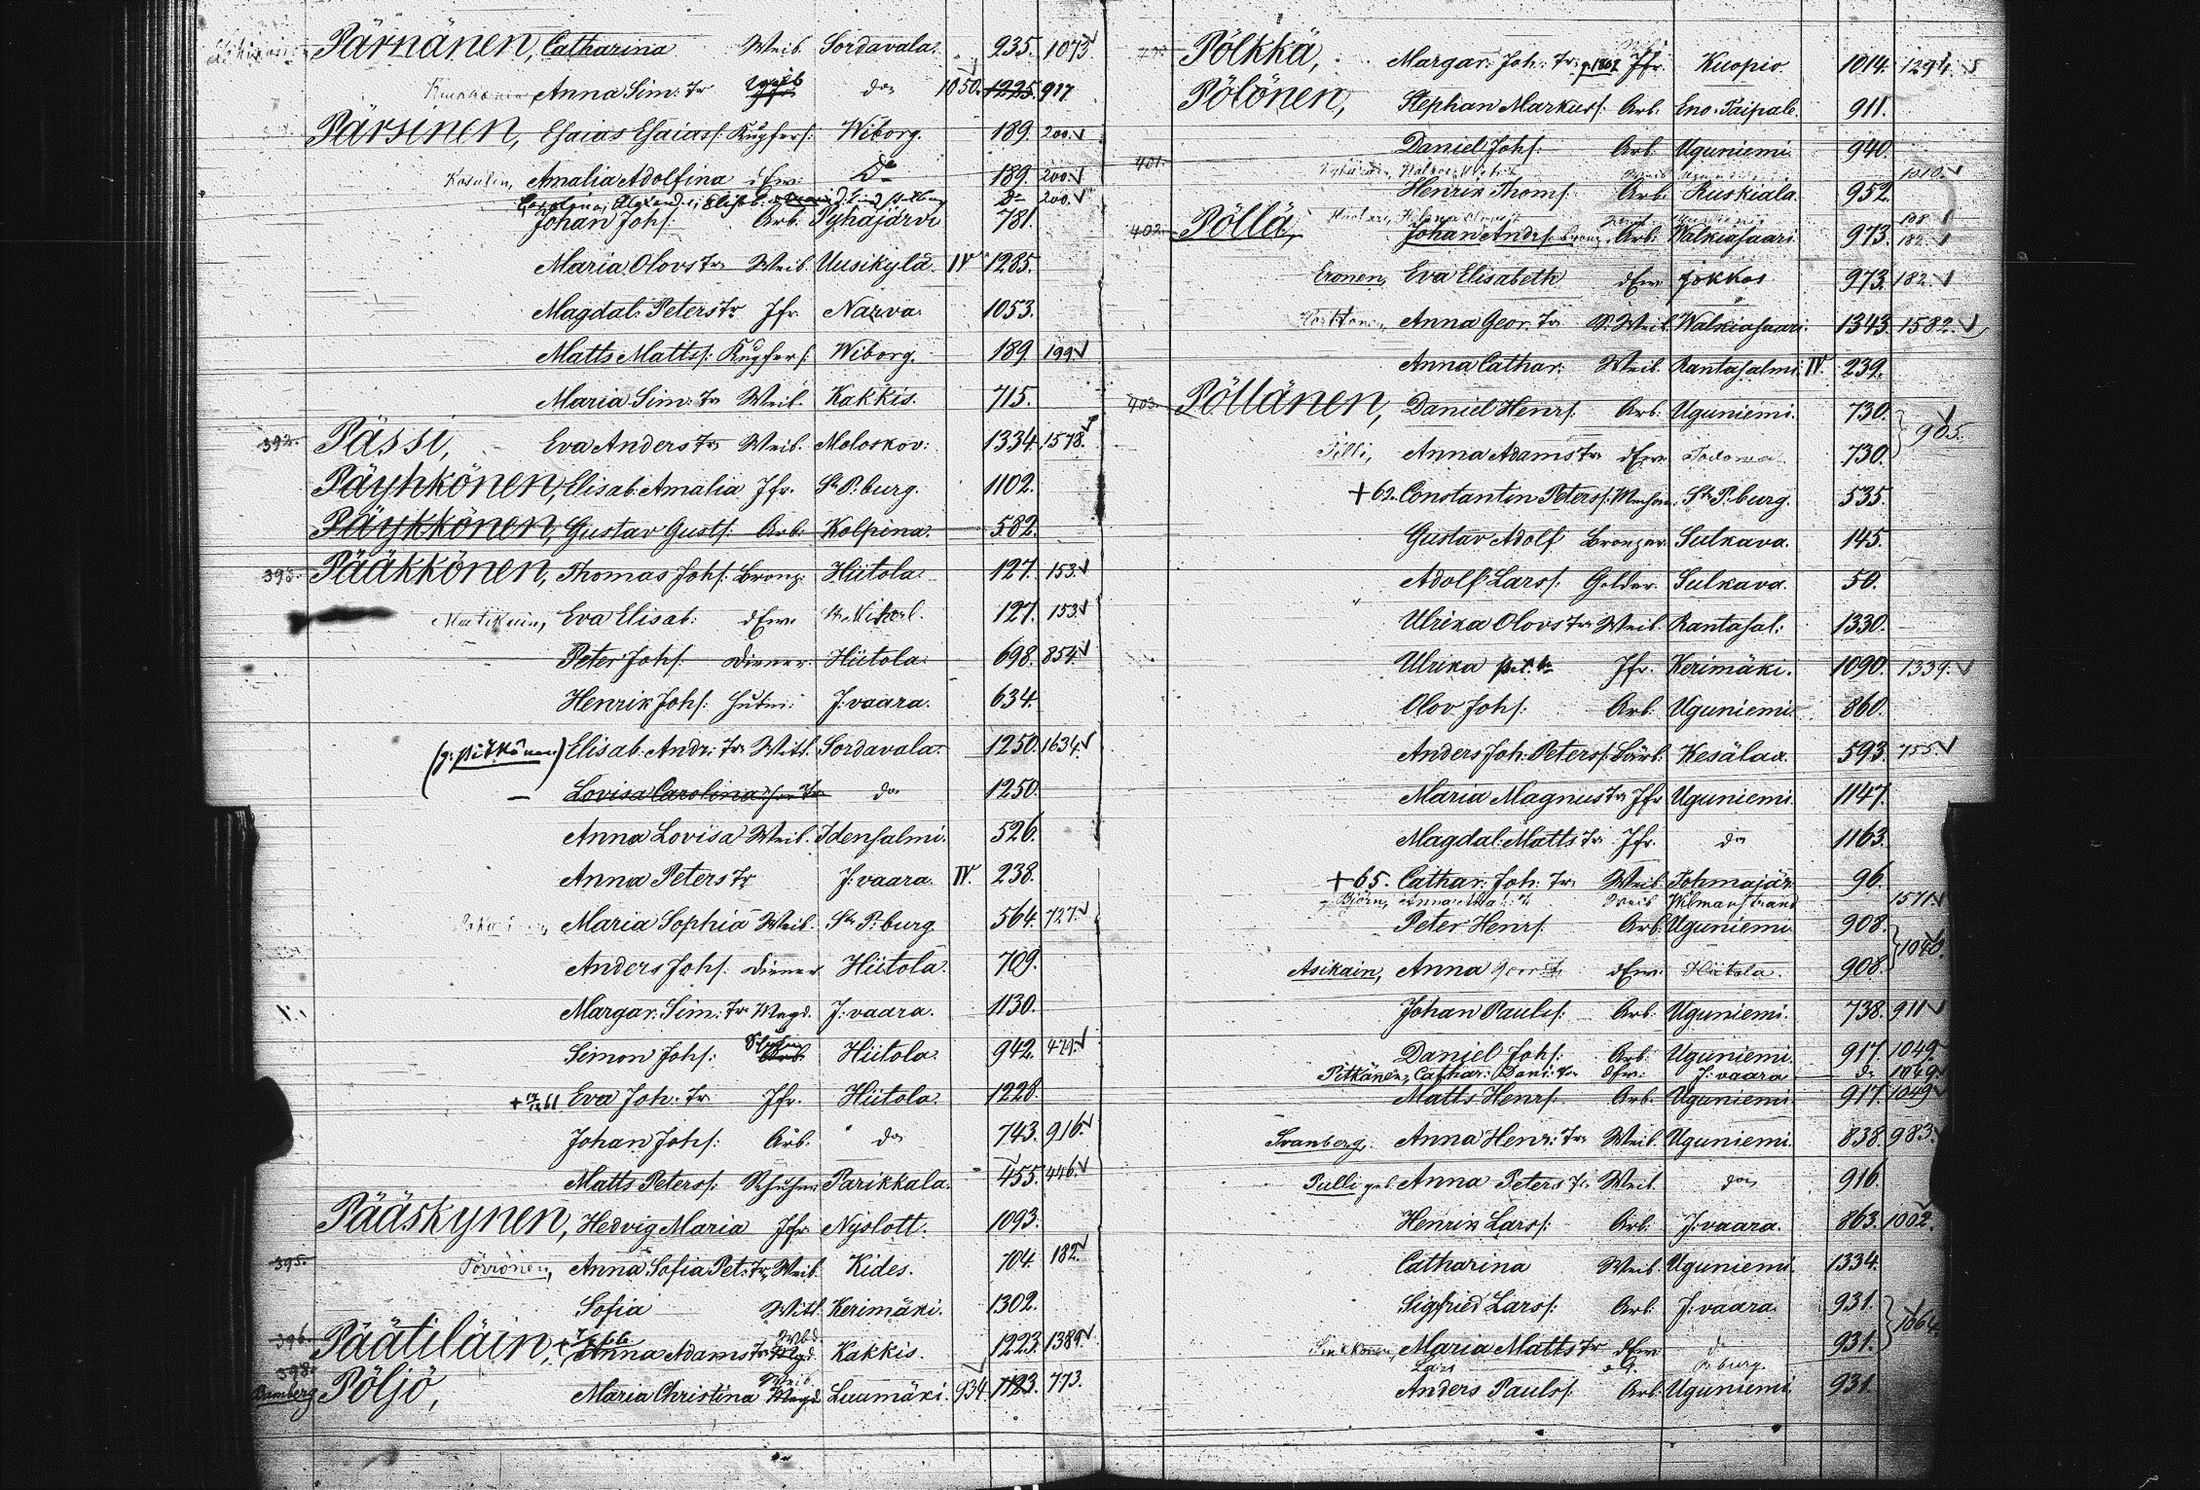 Pärnänen, Catharina Weib. Sordavala. 935. 1073
Anna Sim: Tr do 1050. 1225. 917.
Pärsinen, Esaias Esaiass: Kupfers: Wiborg. 189. 200.
Kosulin, Amalia Adolfina dErw: Do 189. 200.
Do 200.
Johan Johs: Arb. Pyhäjärvi 781.
Maria Olovs Tr Weib. Uusikylä. IV 1285.
Magdal: Peters Tr Jfr. Narva. 1053.
Matts Mattss: Kupfers: Wiborg. 189. 199
Maria Sim: Tr Weib. Kakkis. 715.
392. Pässi, Eva Anders Tr Weib. Moloskov: 1334. 1578.
Päyhkönen, Elisab: Amalia Jfr. St P:burg. 1102.
Päykkönen, Gustav Gusts: Arb: Kolpina. 582.
393. Pääkkönen, Thomas Johs: Bronz: Hiitola. 127. 153.
Eva Elisab: dErw. St Michel. 127. 153
Peter Johs: Diener. Hiitola. 698. 854.
Henrik Johs: J:vaara. 634.
(g: Pitkänen) Elisab: Andr: Tr Witt. Sordavala. 1250. 1634.
Lovisa Carolina do 1250.
Anna Lovisa Weib. Idensalmi. 526.
Anna Peters Tr J:vaara. IV. 238.
Maria Sophia Weib. St P:burg. 564. 727.
Anders Johs: Diener Hiitola. 709.
Margar: Sim: Tr Magd. J:vaara. 1130.
Simon Johs: Arb. Hiitola. 942. 479.
Eva Joh: Tr Jfr. Hiitola. 1228.
Johan Johs: Arb. do 743. 916.
Matts Peterss: Schuhm Parikkala. 455. 446.
Pääskynen, Hedvig Maria Jfr Nyslott. 1093.
395. Törrönen, Anna Sofia Pet: Tr, Weib. Kides. 704. 182.
Sofia Witt. Kerimäki. 1302.
396. Päätiläin, Anna Adams Tr Kakkis. 1223. 1389.
398. Bamberg Pöljö, Maria Christina Weib. Magd Luumäki. 934. 1123. 773.
Pölkkä, Margar: Joh: Tr Jfr. Kuopio. 1014. 1294.
Pölönen, Stephan Markuss: Arb. Eno. Taipale. 911.
Daniel Johs: Arb. Uguniemi. 940.
401. 1010.
Henrik Thoms: Arb. Ruskiala. 952.
Helena
402. Pöllä, Johan Ands: Arb. Walkiasaari. 973. 182.
Eronen, Eva Elisabeth dErw. Jokkas 973. 182.
Anna Geor. Tr S. Weib. Walkiasaari. 1343. 1582.
Anna Cathar: Weib. Rantasalmi. IV. 239.
403. Pöllänen, Daniel Henrs: Arb: Uguniemi. 730.
905.
Tilli, Anna Adams Tr dErw. 730.
+62. Constantin Peterss: St P:burg. 535.
Gustav Adolf Bronzer. Sulkava. 145.
Adolf Larss: Golder. Sulkava. 50.
Ulrika Olovs Tr Weib. Rantasal: 1330.
Ulrika Pet. Tr Jfr. Kerimäki. 1090. 1339.
Olov Johs: Arb. Uguniemi. 860.
Anders Joh: Peterss: Kesälax. 593. 755.
Maria Magnus Tr Jfr Uguniemi. 1147.
Magdal: Matts Tr Jfr. do 1163.
+65. Cathar: Joh: Tr. Weib. Tohmajär: 96.
Björn, Anna Weib Wilmanstrand 1571.
Peter Henrs: Arb. Uguniemi 908.
1040.
Asikain, Anna dErw. Hiitola. 908.
Johan Paulss: Arb. Uguniemi. 738. 911
Daniel Johs: Arb. Uguniemi. 917. 1049.
Pitkänen, Cathar: Dani: Tr dErw: J:vaara do 1049
Matts Henrs: Arb. Uguniemi. 917. 1049
Svanberg, Anna Henr: Tr Weib. Uguniemi. 838. 983.
Pulli geb. Anna Peters Tr Weib. do 916.
Henrik Larss: Arb. J:vaara. 863. 1002.
Catharina Weib. Uguniemi. 1334.
Sigfried Larss: Arb. J:vaara. 931.
1064.
Maria Matts Tr dErw do 931.
Lars P:burg.
Anders Paulss: Arb. Uguniemi. 931.